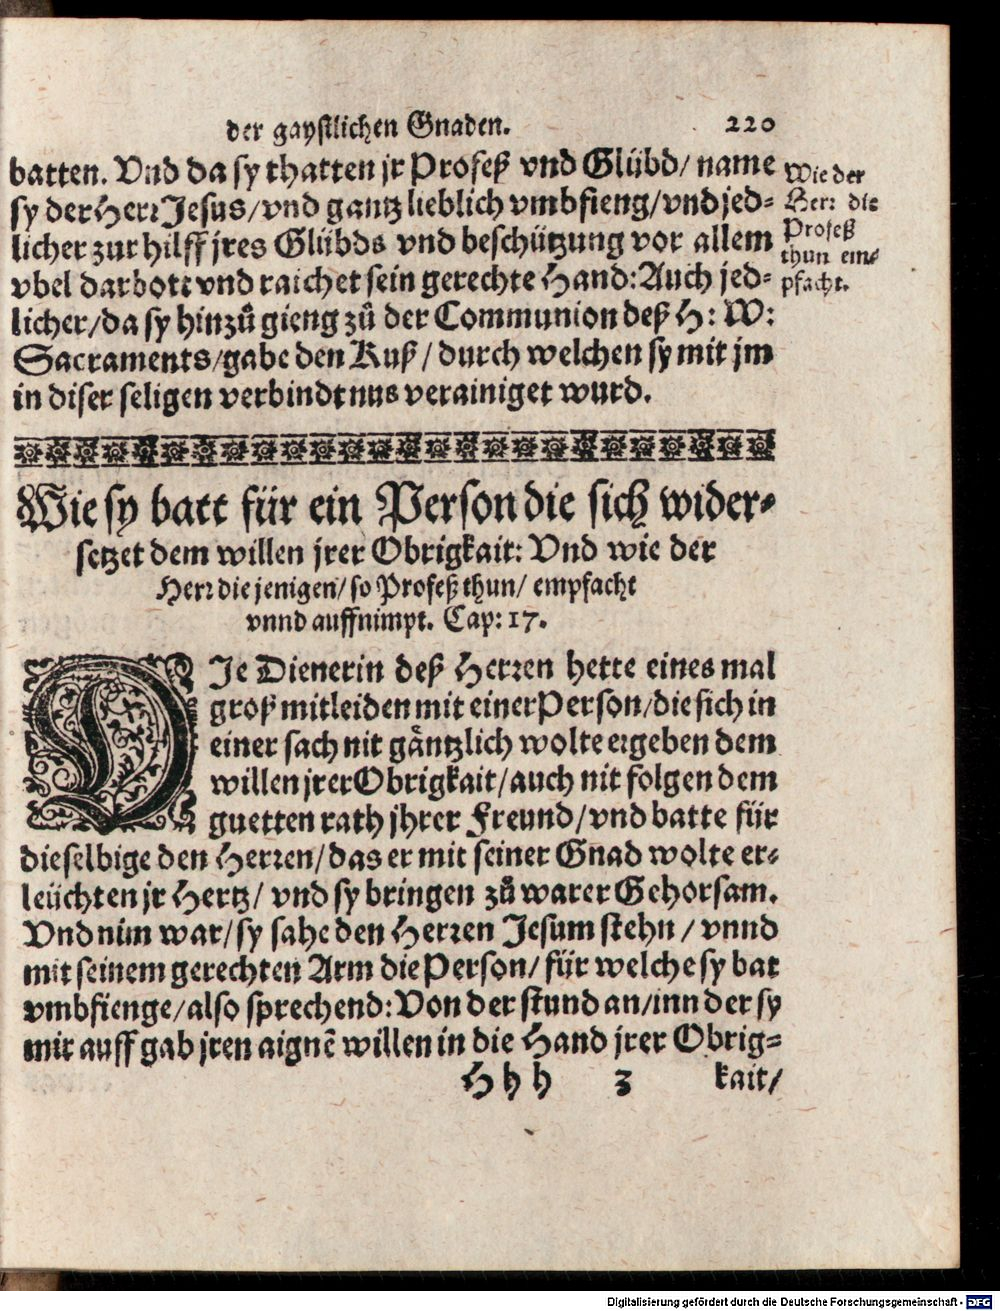 der gaystlichen Gnaden. 220
batten. Vnd da sy thatten jr Profeß vnd Glübd/ name
sy der Herr Jesus/vnd gantz lieblich vmbfieng/vnd jed-
licher zur hilff jres Glübds vnd beschützung vor allem
vbel darbott vnd raichet sein gerechte Hand: Auch jed-
licher/da sy hinzů gieng zů der Communion deß H: W:
Sacraments/gabe den Kuß/ durch welchen sy mit jm
in diser seligen verbindtnus verainiget wurd.
Wie der
Herr die
Profeß
thun em-
pfacht.
Wie sy batt für ein Person die sich wider-
setzet dem willen jrer Obrigkait: Vnd wie der
Herr die jenigen/ so Profeß thun/ empfacht
vnnd auffnimpt. Cap: 17.
DJe Dienerin deß Herren hette eines mal
groß mitleiden mit einer Person/die sich in
einer sach nit gäntzlich wolte ergeben dem
willen jrer Obrigkait/auch nit folgen dem
guetten rath jhrer Freund/vnd batte für
dieselbige den Herren/das er mit seiner Gnad wolte er-
leüchten jr Hertz/ vnd sy bringen zů warer Gehorsam.
Vnd nim war/sy sahe den Herren Jesum stehn/ vnnd
mit seinem gerechten Arm die Person/ für welche sy bat
vmbfienge/also sprechend: Von der stund an/inn der sy
mir auff gab jren aignē willen in die Hand jrer Obrig-
Hhh 3 kait/
Digitalisierung gefördert durch die Deutsche Forschungsgemeinschaft - DFG